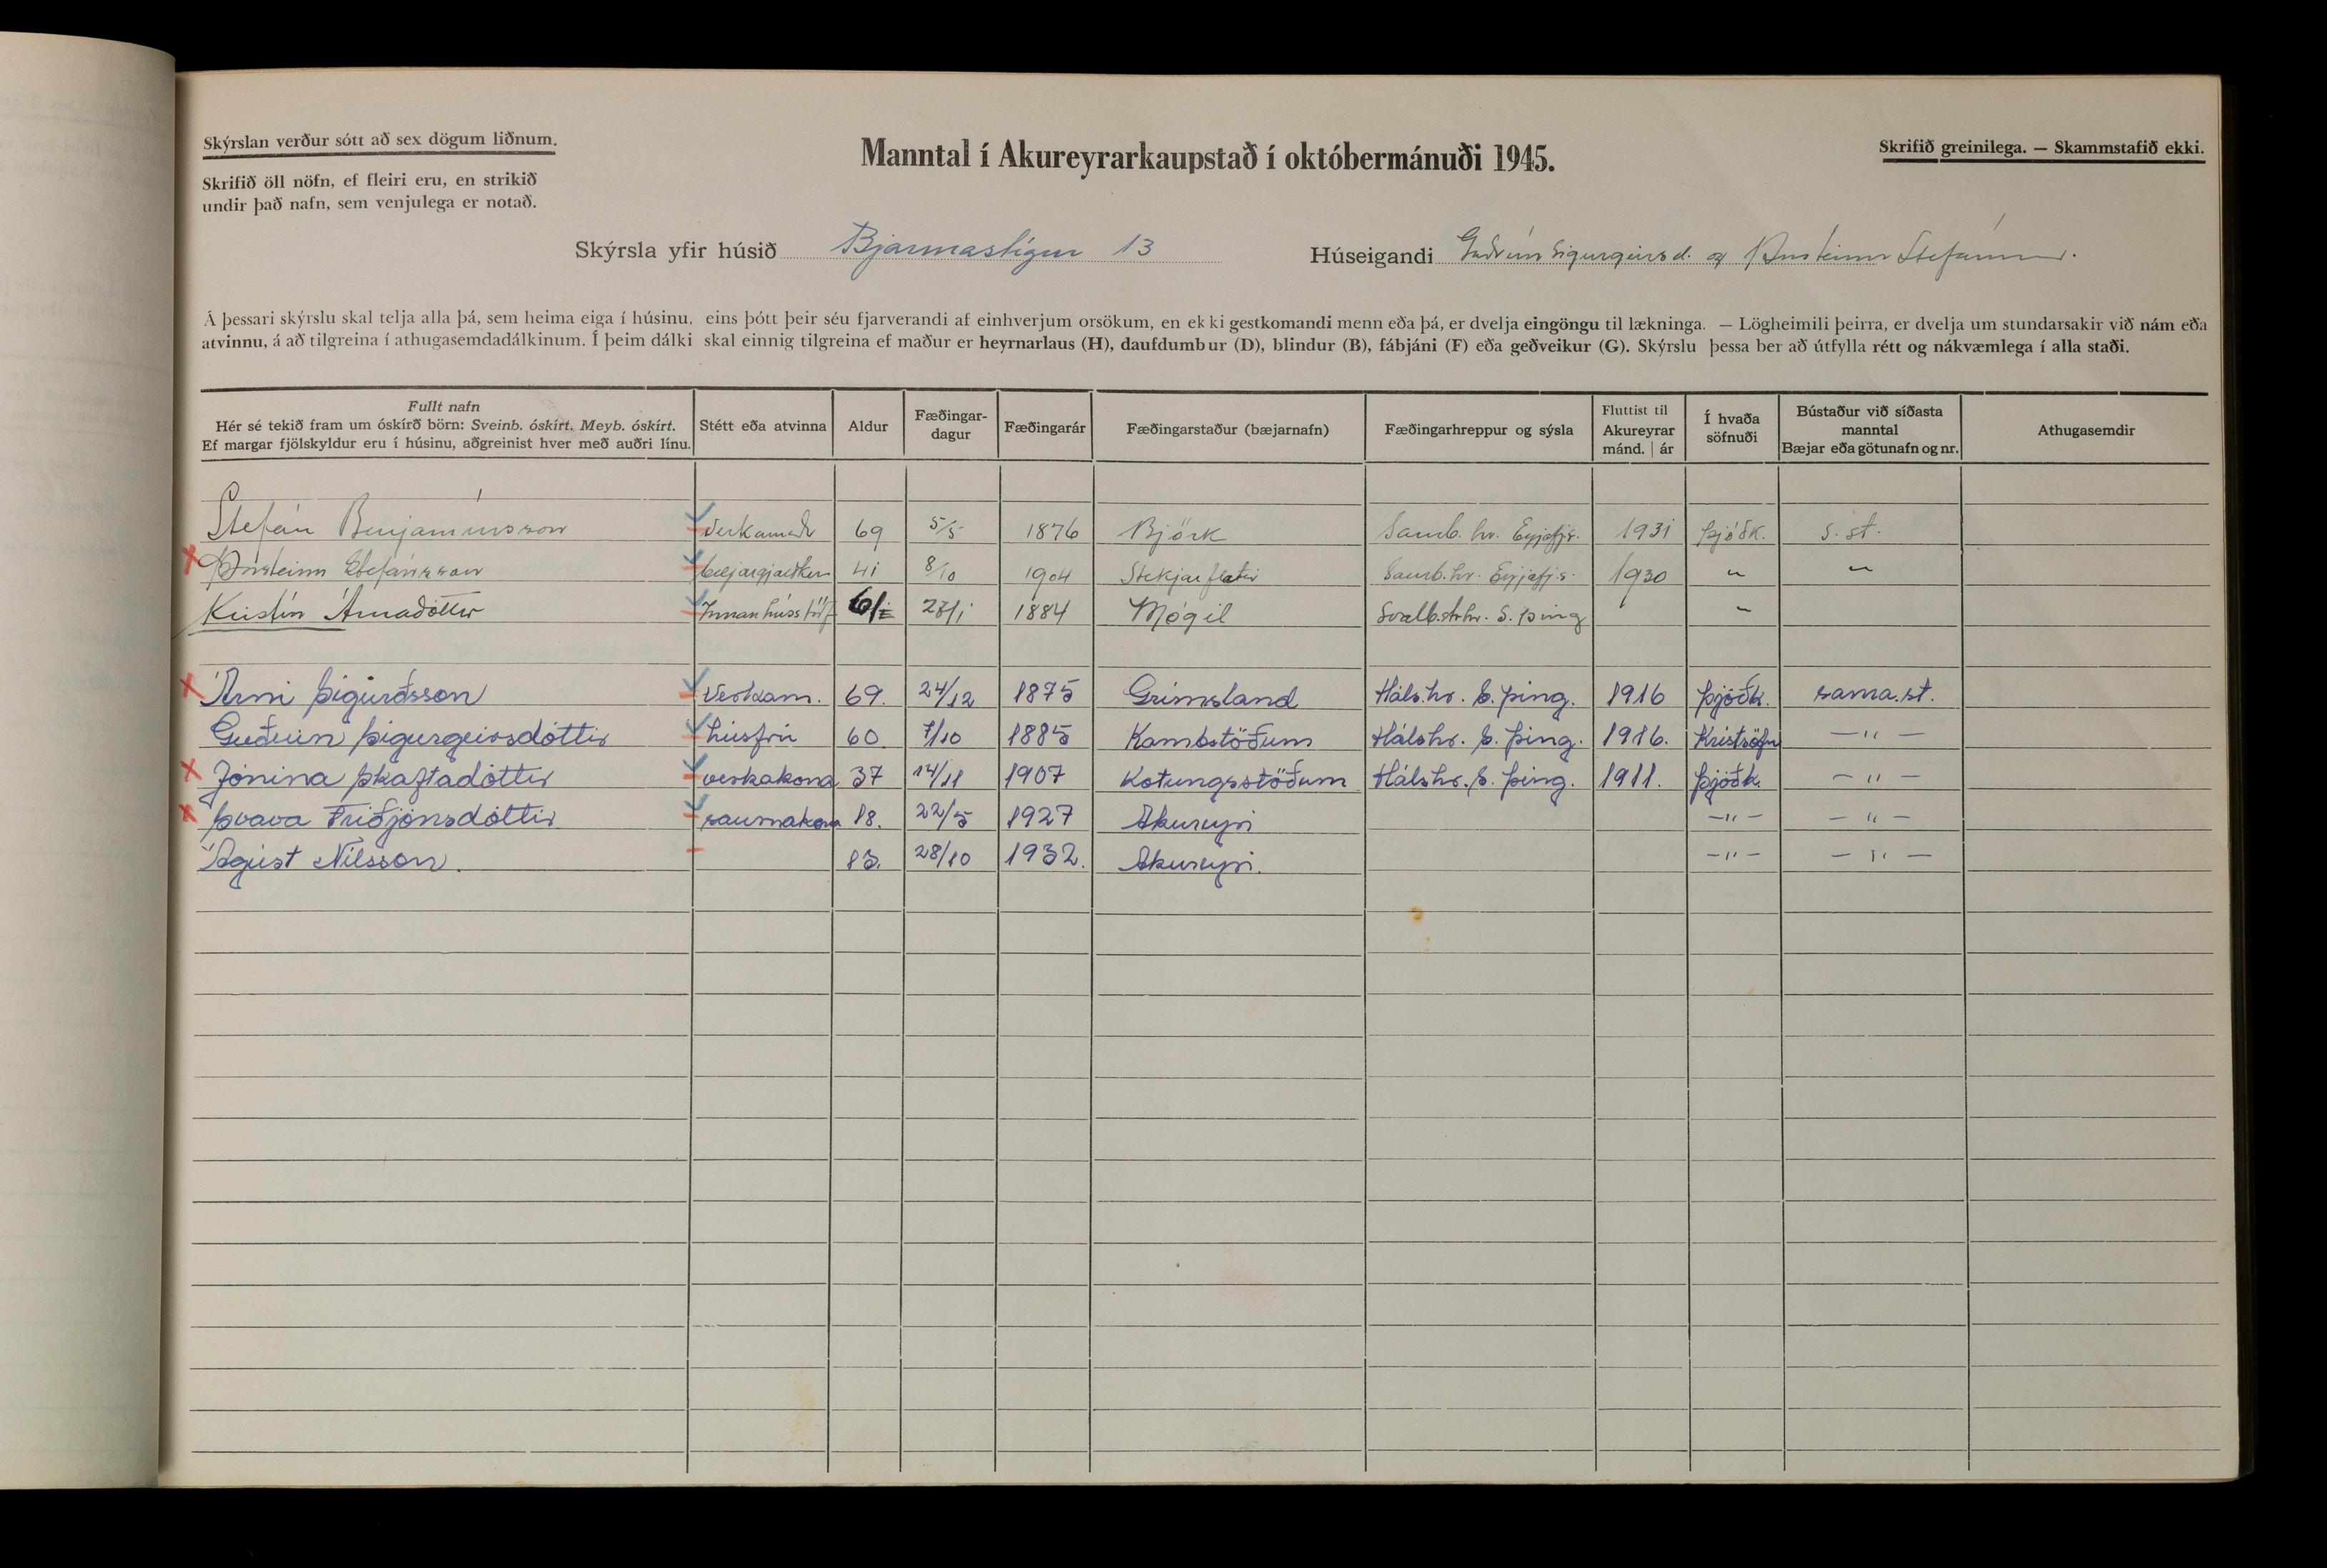 Skýrslan verður sótt að sex dögum liðnum.
Skrifið öll nöfn, ef fleiri eru, en strikið
undir það nafn, sem venjulega er notað.
Manntal í Akureyrarkaupstað í októbermánuði 1945.
Skrifið greinilega. — Skammstafið ekki.
Skýrsla yfir húsið Bjarmastígur 13 Húseigandi Guðrún Sigurgeirsd. og Þorsteinn Stefánsson.
Á þessari skýrslu skal telja alla þá, sem heima eiga í húsinu, eins þótt þeir séu fjarverandi af einhverjum orsökum, en ekki gestkomandi menn eða þá, er dvelja eingöngu til lækninga. — Lögheimili þeirra, er dvelja um stundarsakir við nám eða
atvinnu, á að tilgreina í athugasemdadálkinum. Í þeim dálki skal einnig tilgreina ef maður er heyrnarlaus (H), daufdumbur (D), blindur (B), fábjáni (F) eða geðveikur (G). Skýrslu þessa ber að útfylla rétt og nákvæmlega í alla staði.
Fullt nafn
Hér sé tekið fram um óskírð börn: Sveinb. óskírt. Meyb. óskírt.
Ef margar fjölskyldur eru í húsinu, aðgreinist hver með auðri línu.
Stétt eða atvinna
Aldur
Fæðingar-
dagur
Fæðingarár
Fæðingarstaður (bæjarnafn)
Fæðingarhreppur og sýsla
Fluttist til
Akureyrar
mánd. | ár
Í hvaða
söfnuði
Bústaður við síðasta
manntal
Bæjar eða götunafn og nr.
Athugasemdir
Stefán Benjamínsson Verkamaðr 69 5/5 1876 Björk Saurb. hr. Eyjafj.s. 1931 Þjóðk. s. st.
Þorsteinn Stefánsson bæjargjaldker 41 8/10 1904 Stekjarflatir Saurb. hr. Eyjafj.s. 1930 " "
Kristín Árnadóttir Innanhússtörf 61 27/1 1884 Mógil Svalb.str.hr. S. Þing "
Árni Sigurðsson Verkam. 69. 24/12 1875 Grímsland Hálshr. S. Þing. 1916 Þjóðk. sama.st.
Guðrún Sigurgeirsdóttir húsfrú 60 7/10 1885 Kambstöðum Hálshr. S. Þing. 1916. Kristsöfn — " —
Jónína Skaftadóttir verkakona 37 14/11 1907 Kotungsstöðum Hálshr. S. Þing. 1911. Þjóðk. — " —
Svava Friðjónsdóttir saumakona 18. 22/5 1927 Akureyri — " — — " —
Ágúst Nilsson. 13. 28/10 1932. Akureyri. — " — — " —